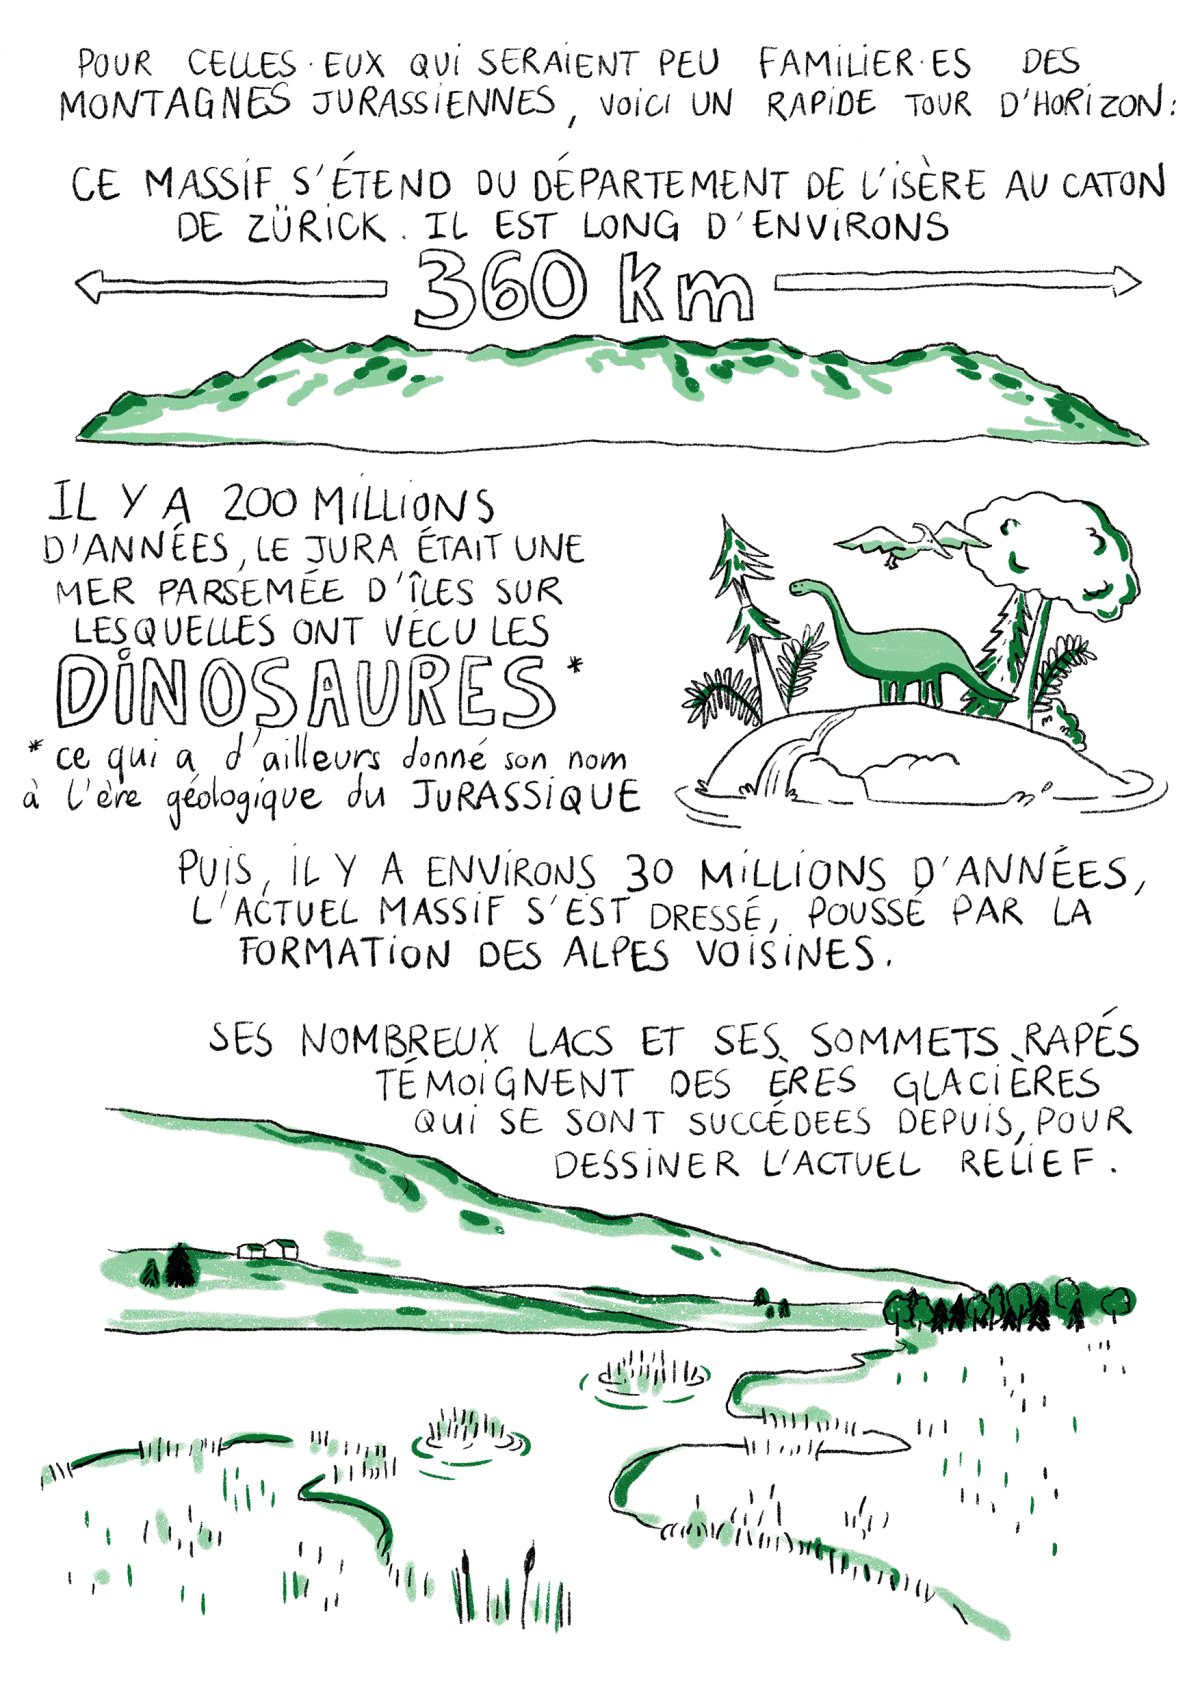 POUR CELLES·EUX QUI SERAIENT PEU FAMILIER·ES DES
MONTAGNES JURASSIENNES, VOICI UN RAPIDE TOUR D'HORIZON:
CE MASSIF S'ÉTEND DU DÉPARTEMENT DE L'ISÈRE AU CATON
DE ZÜRICK. IL EST LONG D'ENVIRONS
360 km
IL Y A 200 MILLIONS
D'ANNÉES, LE JURA ÉTAIT UNE
MER PARSEMÉE D'ÎLES SUR
LESQUELLES ONT VÉCU LES
DINOSAURES*
*ce qui a d'ailleurs donné son nom
à l'ère géologique du JURASSIQUE
PUIS, IL Y A ENVIRONS 30 MILLIONS D'ANNÉES,
L'ACTUEL MASSIF S'EST DRESSÉ, POUSSÉ PAR LA
FORMATION DES ALPES VOISINES.
SES NOMBREUX LACS ET SES SOMMETS RAPÉS
TÉMOIGNENT DES ÈRES GLACIÈRES
QUI SE SONT SUCCÉDEES DEPUIS, POUR
DESSINER L'ACTUEL RELIEF.